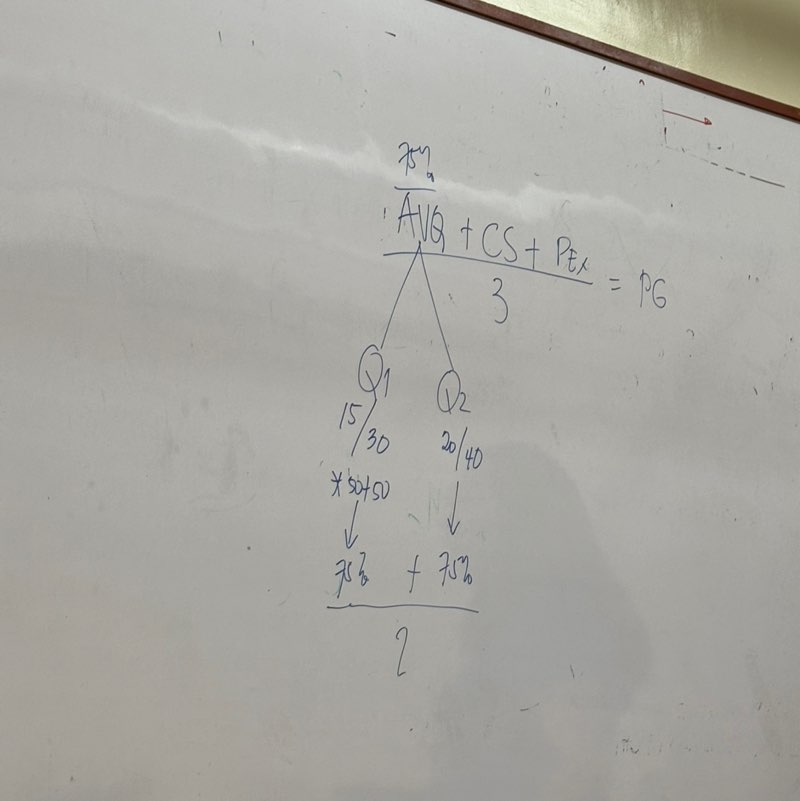 75%
AVQ + CS + PEx
3
= PG
Q1 Q2
15/30 20/40
*50+50
75% + 75%
2